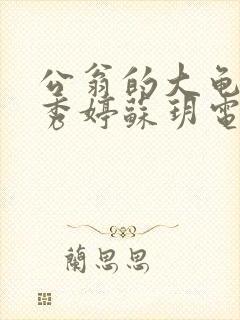 公翁的大龟
秀婷蘇玥電
蘭思思